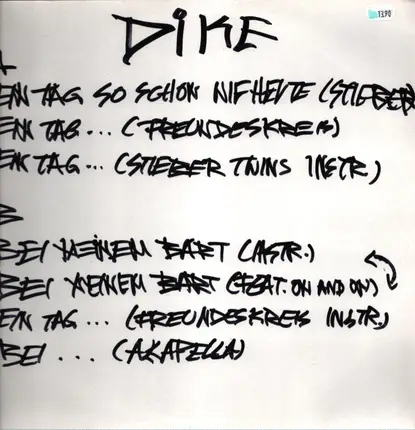 DIKE
13,90
A
EIN TAG SO SCHÖN WIE HEUTE (STIEBER
EIN TAG... (FREUNDESKREIS)
EIN TAG... (STIEBER TWINS INSTR.)
B
BEI MEINEM BART (INSTR.)
BEI MEINEM BART (FEAT. ON AND ON)
EIN TAG... (FREUNDESKREIS INSTR.)
BEI ... (AKAPELLA)